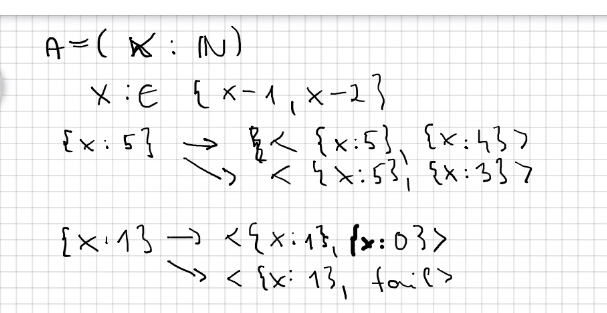 A=( x : ℕ)
x :∈ {x-1, x-2}
{x:5} → < {x:5}, {x:4}>
↘ < {x:5}, {x:3}>
{x:1} → <{x:1}, {x:0}>
↘ < {x:1}, fail>